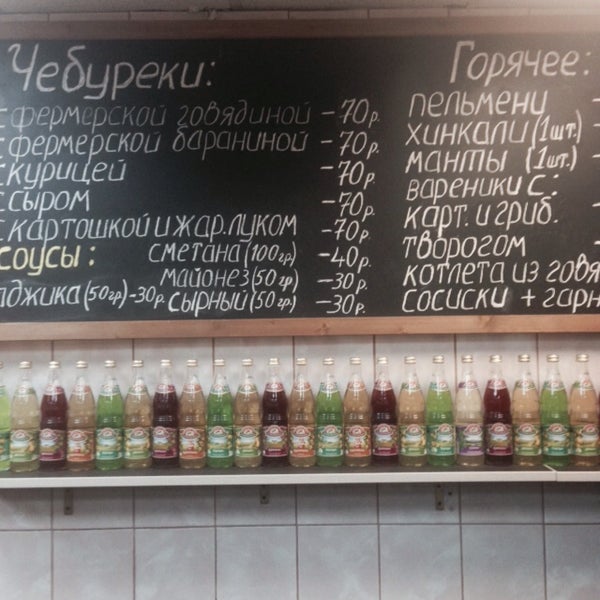 Чебуреки:
с фермерской говядиной -70р.
с фермерской бараниной -70р.
с курицей -70р.
с сыром -70р.
с картошкой и жар. луком -70р.
соусы: сметана (100гр) -40р.
майонез (50гр) -30р.
аджика (50гр) -30р. сырный (50гр) -30р.
Горячее:
пельмени -
хинкали (1шт.)
манты (1шт.)
вареники с:
карт. и гриб.
творогом
котлета из говя
сосиски + гарн